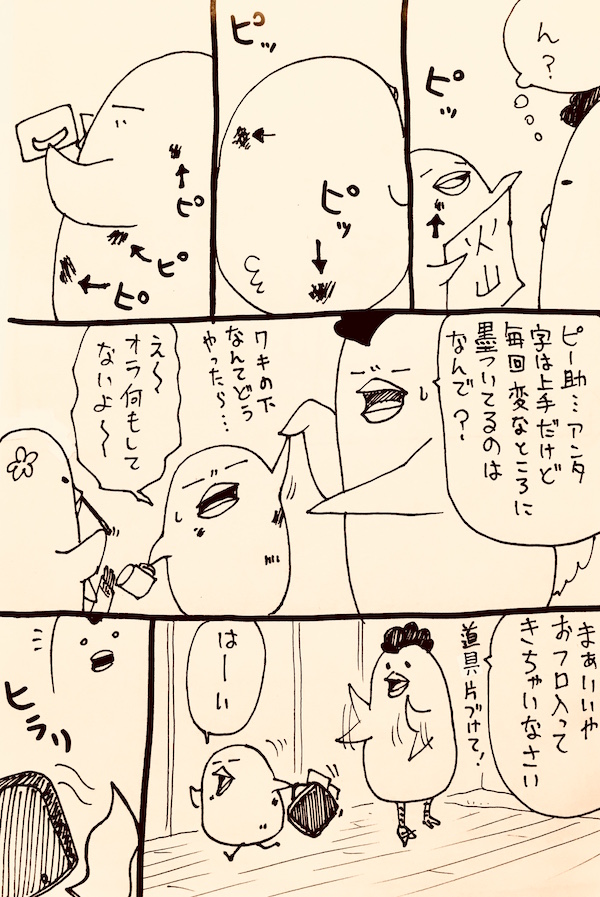 ん?
ピッ
火山
ピッ
ピッ
ピ
ピ
ピ
ピー助…アンタ
字は上手だけど
毎回変なところに
墨ついてるのは
なんで?
ワキの下
なんてどう
やったら…
え〜
オラ何もして
ないよ〜
まぁいいや
おフロ入って
きちゃいなさい
道具片づけて!
はーい
ヒラリ